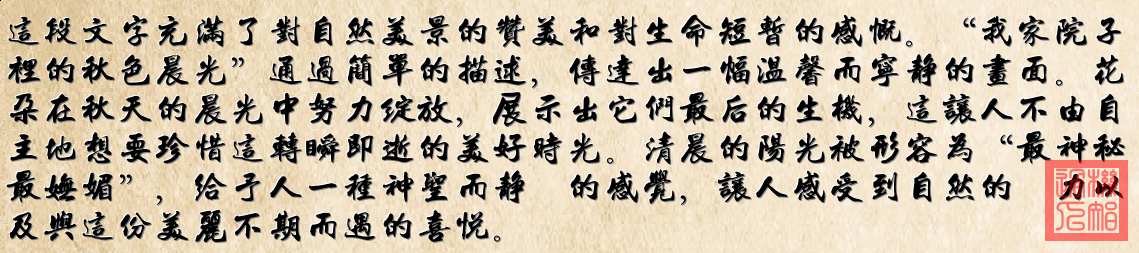 這段文字充滿了對自然美景的贊美和對生命短暫的感慨。“我家院子
裡的秋色晨光”通過簡單的描述，傳達出一幅溫馨而寧靜的畫面。花
朵在秋天的晨光中努力綻放，展示出它們最后的生機，這讓人不由自
主地想要珍惜這轉瞬即逝的美好時光。清晨的陽光被形容為“最神秘
最嫵媚”，給予人一種神聖而靜　的感覺，讓人感受到自然的　力以
及與這份美麗不期而遇的喜悅。